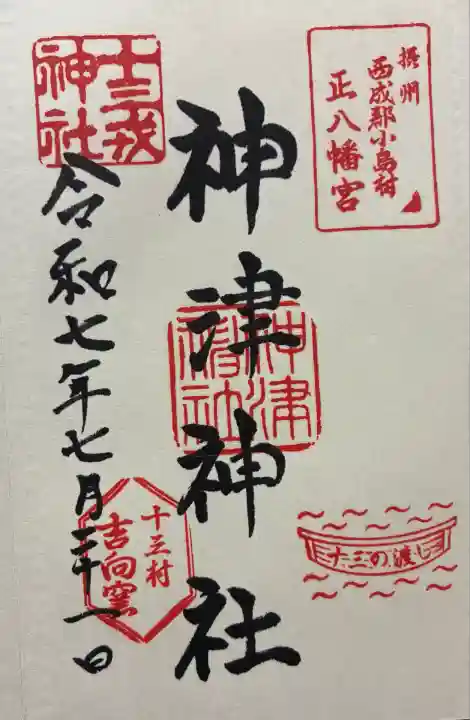 摂州
西成郡小島村
正八幡宮
神津神社
神津
神社
十三の渡し
十三戎
神社
令和七年七月二十一日
十三村
吉向窯